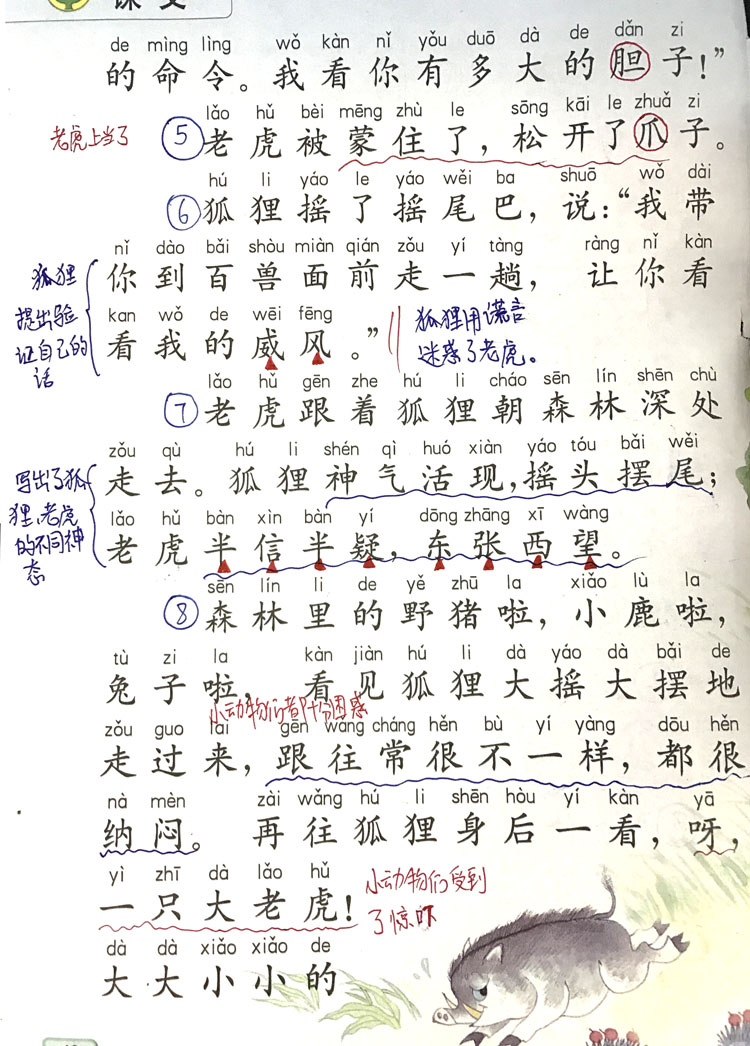 课文
de mìng lìng wǒ kàn nǐ yǒu duō dà de dǎn zi
的命令。我看你有多大的胆子!”
lǎo hǔ bèi mēng zhù le sōng kāi le zhuǎ zi
老虎上当了
⑤老虎被蒙住了，松开了爪子。
hú li yáo le yáo wěi ba shuō wǒ dài
⑥狐狸摇了摇尾巴，说：“我带
nǐ dào bǎi shòu miàn qián zǒu yí tàng ràng nǐ kàn
狐狸
提出验
证自己的
话
你到百兽面前走一趟，让你看
kan wǒ de wēi fēng
看我的威风。”
狐狸用谎言
迷惑了老虎。
lǎo hǔ gēn zhe hú li cháo sēn lín shēn chù
⑦老虎跟着狐狸朝森林深处
zǒu qù hú li shén qì huó xiàn yáo tóu bǎi wěi
写出了狐
狸、老虎
的不同神
态
走去。狐狸神气活现，摇头摆尾；
lǎo hǔ bàn xìn bàn yí dōng zhāng xī wàng
老虎半信半疑，东张西望。
sēn lín li de yě zhū la xiǎo lù la
⑧森林里的野猪啦，小鹿啦，
tù zi la kàn jiàn hú li dà yáo dà bǎi de
兔子啦，看见狐狸大摇大摆地
小动物们都十分困惑
zǒu guo lai gēn wǎng cháng hěn bù yí yàng dōu hěn
走过来，跟往常很不一样，都很
nà mèn zài wǎng hú li shēn hòu yí kàn yā
纳闷。再往狐狸身后一看，呀，
yì zhī dà lǎo hǔ
一只大老虎!
小动物们受到
了惊吓
dà dà xiǎo xiǎo de
大大小小的